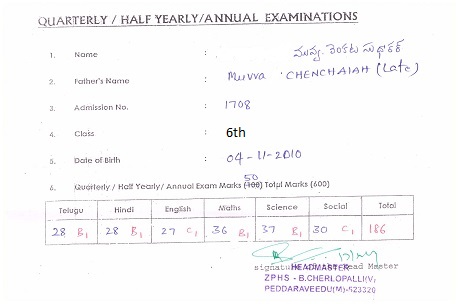 QUARTERLY / HALF YEARLY/ANNUAL EXAMINATIONS
1. Name : మువ్వ వెంకట సుధాకర్
2. Father's Name : Muvva CHENCHAIAH (Late)
3. Admission No. : 1708
4. Class : 6th
5. Date of Birth : 04-11-2010
50
6. Quarterly / Half Yearly/ Annual Exam Marks (100) Total Marks (600)
Telugu Hindi English Maths Science Social Total
28 B1 28 B1 27 C1 36 B1 37 B1 30 C1 186
signature of the Head Master
HEADMASTER
ZPHS - B.CHERLOPALLI(V)
PEDDARAVEEDU(M)-523320